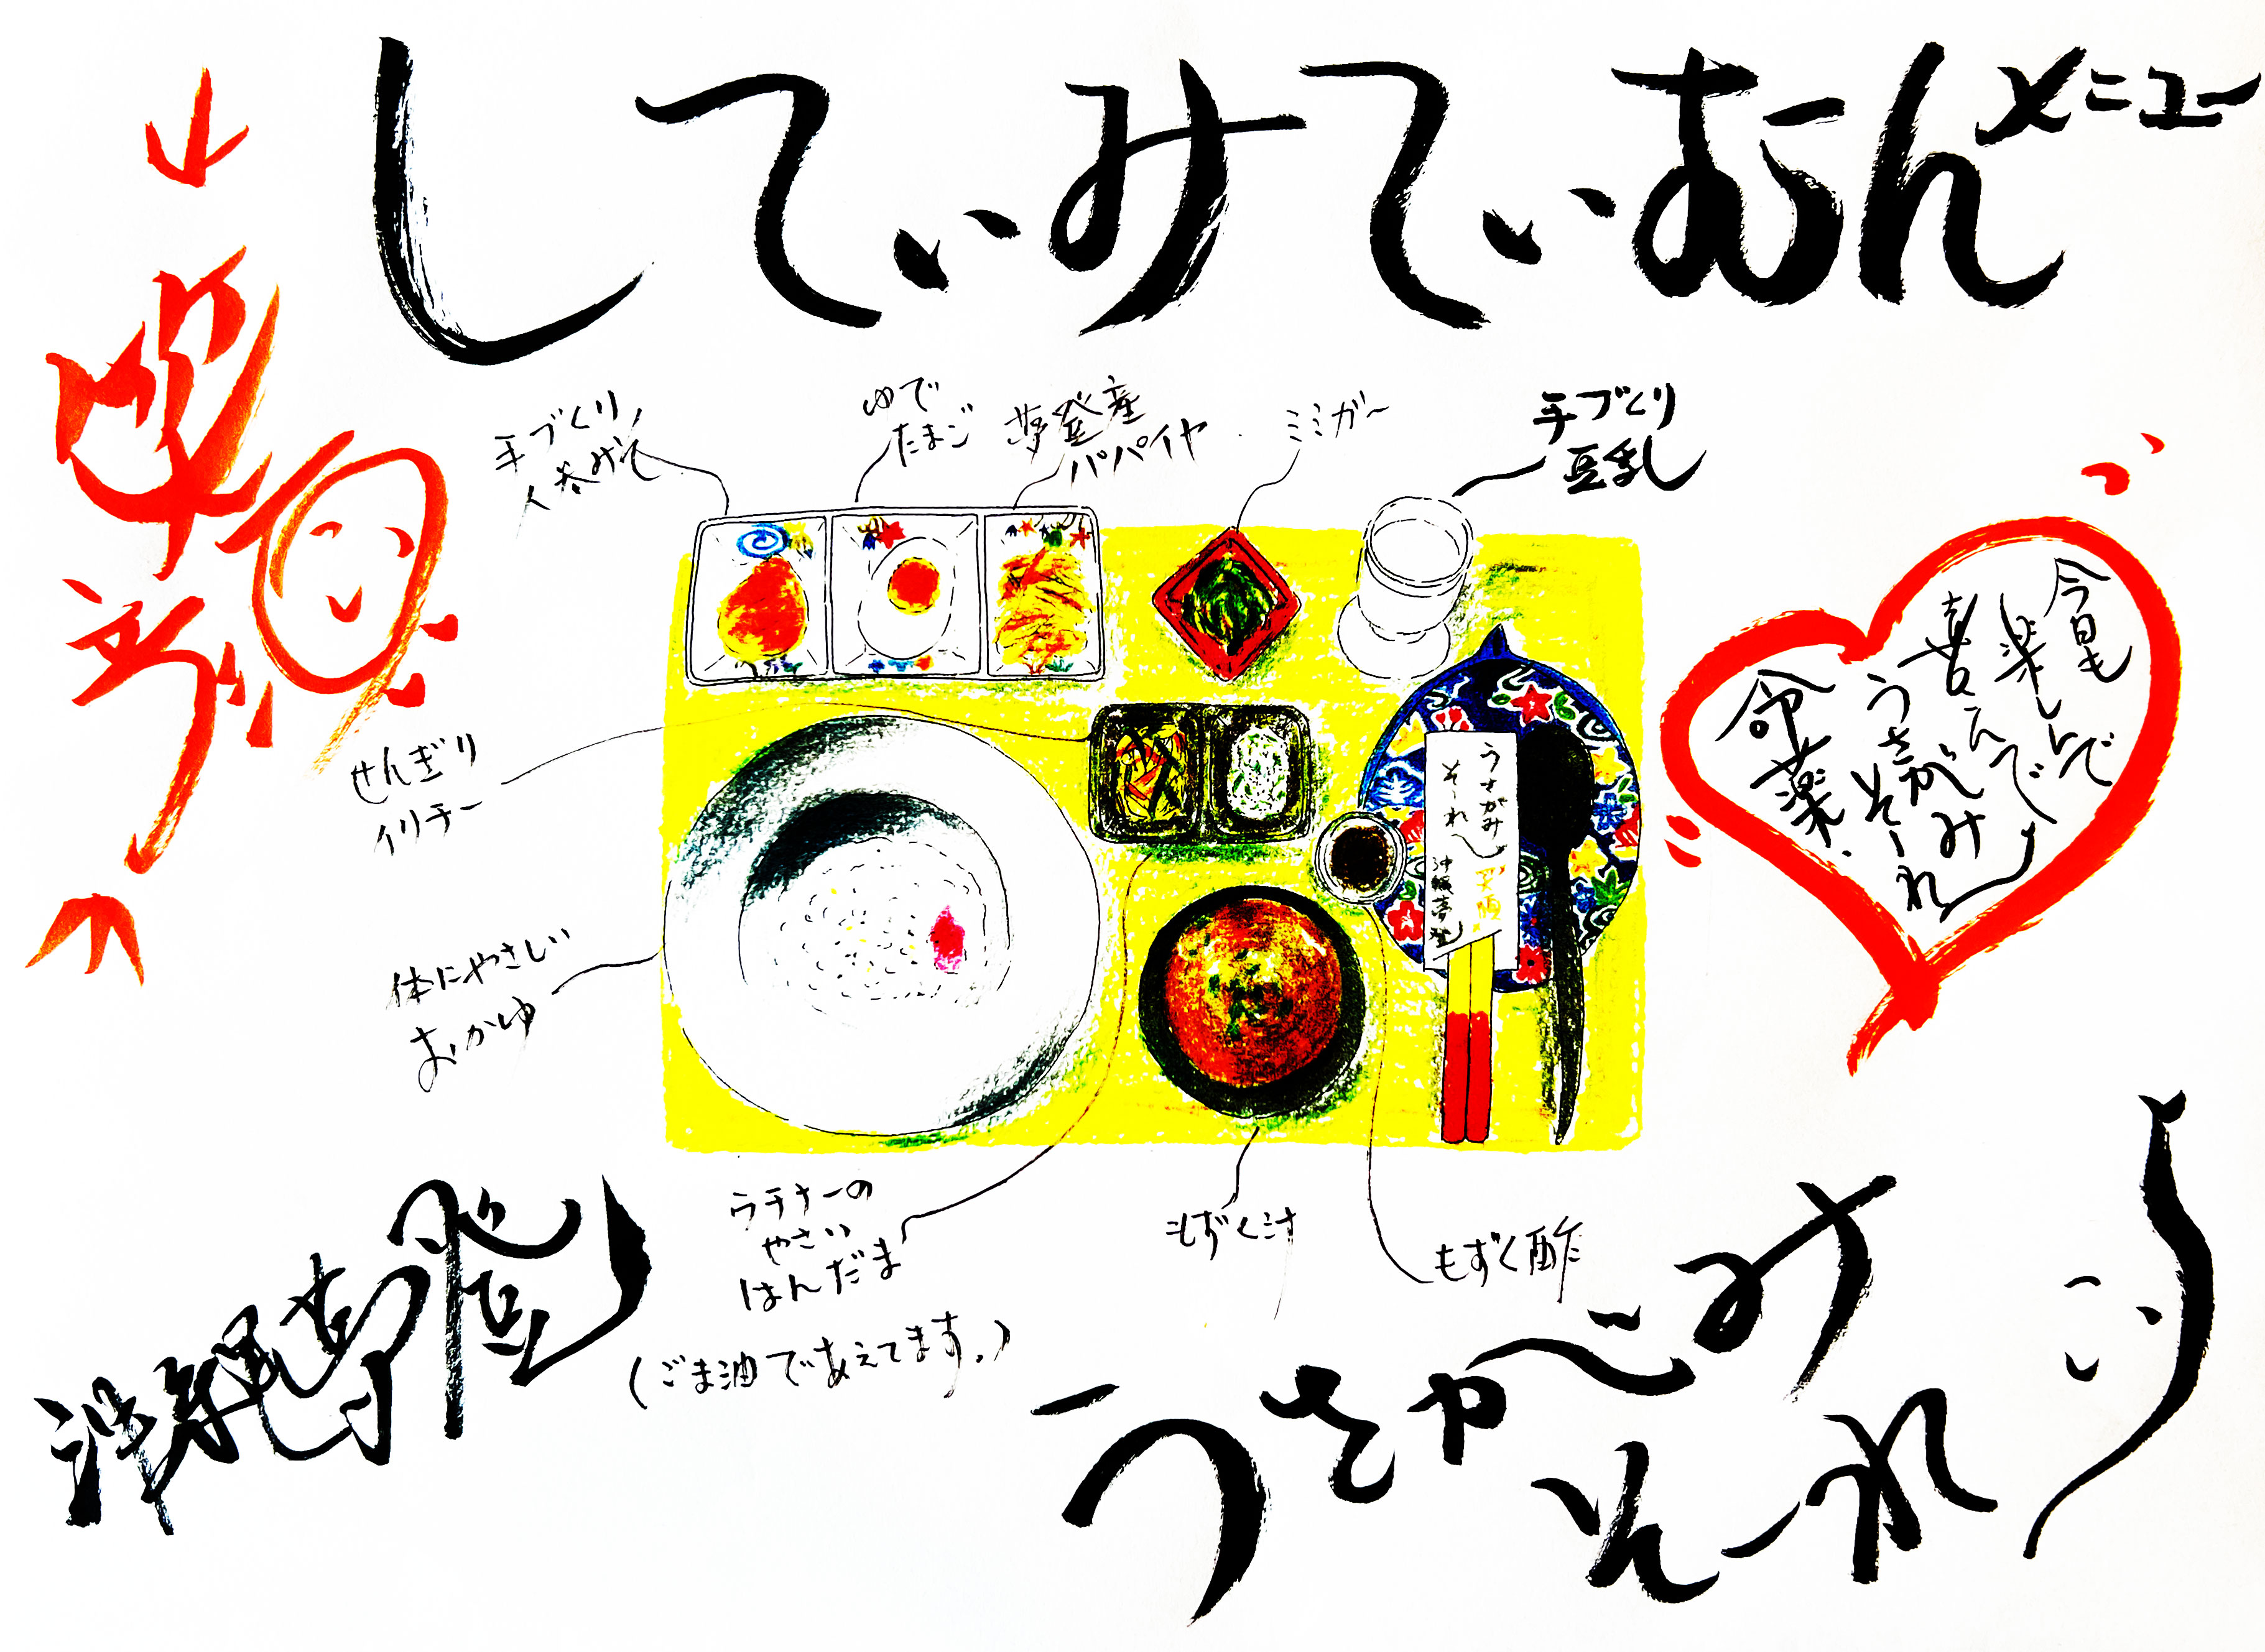 してぃみてぃむん メニュー
手づくり
ゆで
たまご
夢登産
パパイヤ
ミミガー
手づくり
豆乳
せんぎり
イリチー
体にやさしい
おかゆ
ウチナーの
やさい
はんだま
(ごま油であえてます。)
もずく汁
もずく酢
うさがみ
そーれー
沖縄夢登
今日も
楽しんで
喜んで
うさがみ
そーれー
命薬
沖縄夢登
うさがみ
そーれー